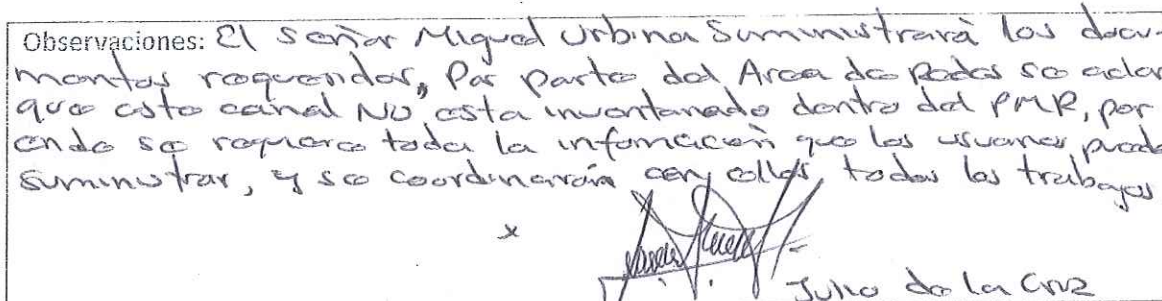 Observaciones: El señor Miguel Urbina Suministrará los docu-
mentos requeridos, Por parte del Area de Redes se aclar
que este canal NO esta inventariado dentro del PMR, por
ende se requiere toda la información que los usuarios pueda
suministrar, y se coordinarán con ellos, todos los trabajos
x
Julio de la Cruz